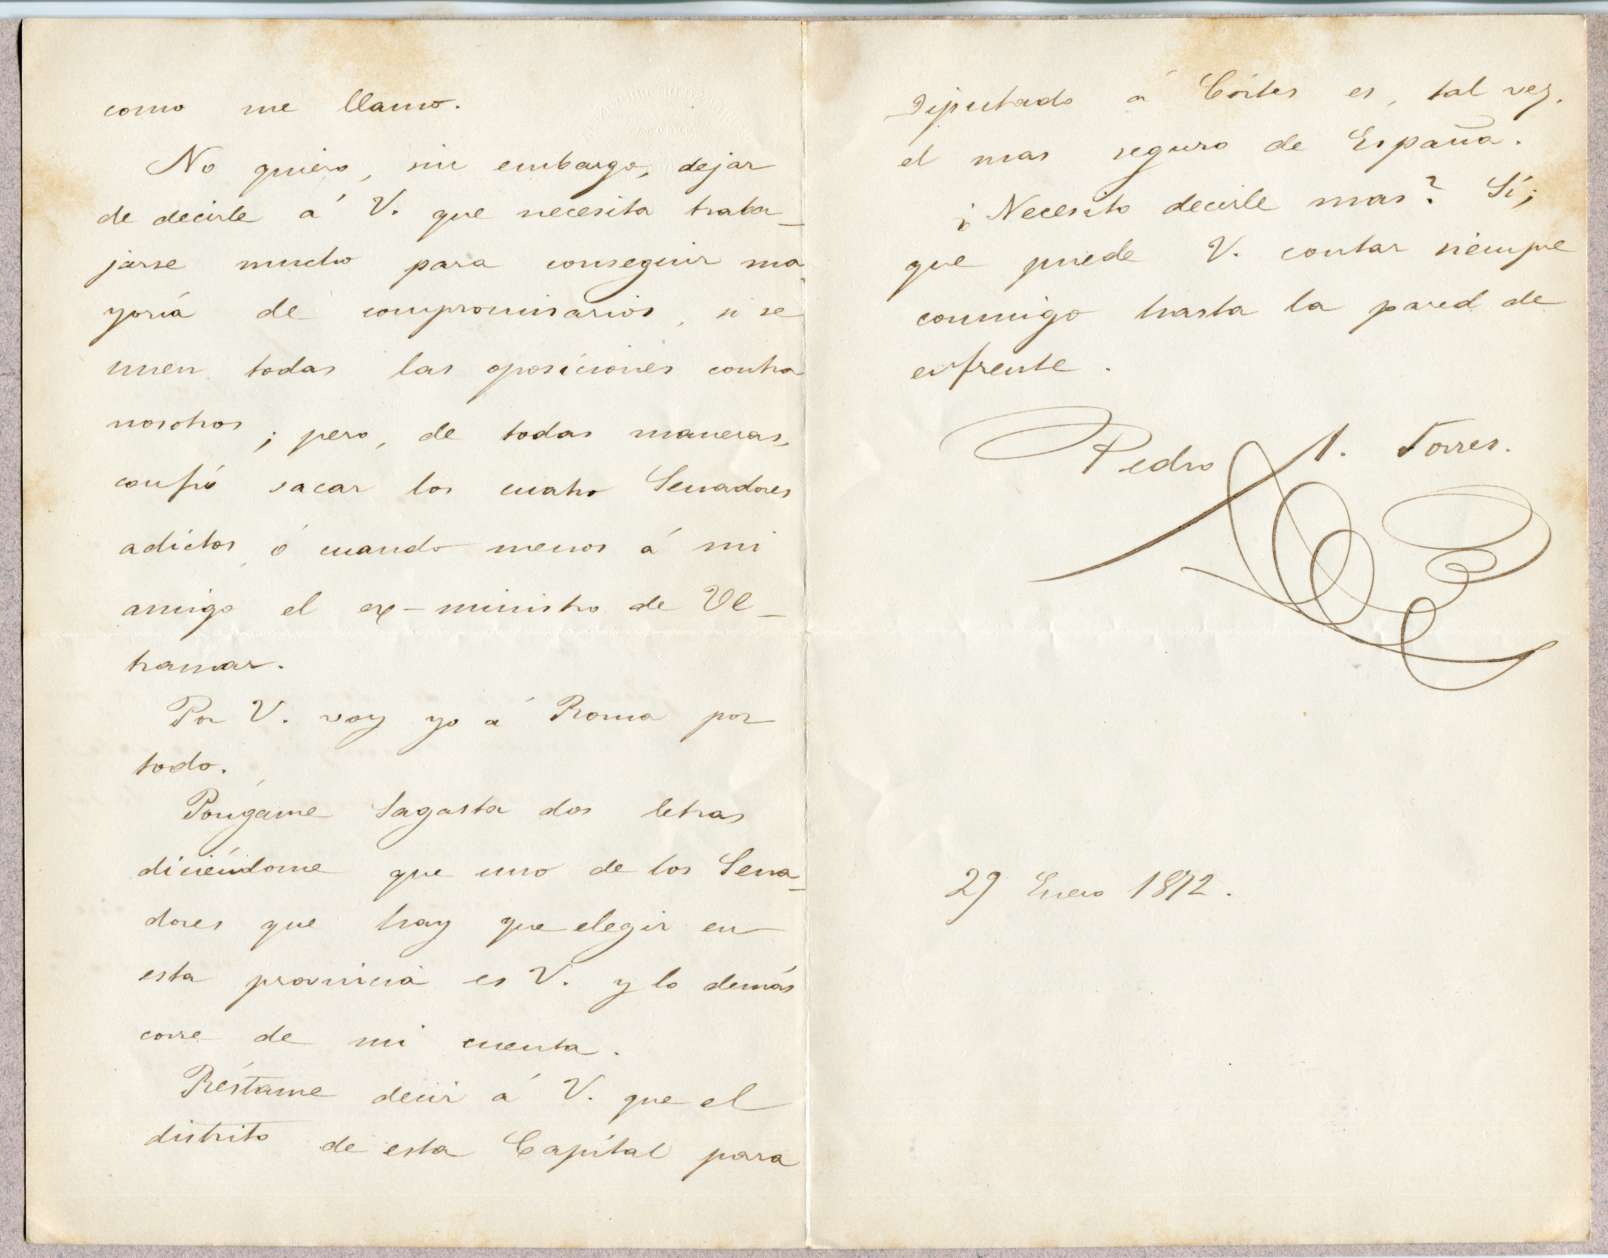 como me llamo.
No quiero, sin embargo, dejar
de decirle á V. que necesita traba-
jarse mucho para conseguir ma-
yoría de compromisarios, si se
unen todas las oposiciones contra
nosotros; pero, de todas maneras,
confío sacar los cuatro Senadores
adictos, ó cuando menos á mi
amigo el ex-ministro de Ul-
tramar.
Por V. voy yo á Roma por
todo.
Póngame Sagasta dos letras
diciéndome que uno de los Sena-
dores que hay que elegir en
esta provincia es V. y lo demás
corre de mi cuenta.
Réstame decir á V. que el
distrito de esta Capital para
Diputado á Córtes es, tal vez,
el mas seguro de España.
¿Necesito decirle mas? Sí;
que puede V. contar siempre
conmigo hasta la pared de
enfrente.
Pedro A. Torres.
29 Enero 1872.